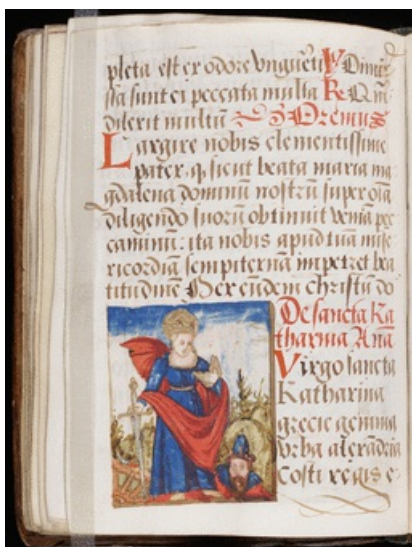 pleta est ex odore vngue͞ti ℣ Dimis
sa sunt ei peccata multa ℟ Q͞m
dilexit multu͞ Oremus
Largire nobis clementissime
pater, q, sicut beata maria ma
gdalena dominu͞ nostru͞ super o͞ia
diligendo suoru͞ obtinuit venia͞ pec
caminu͞: ita nobis apud tua͞ mise
ricordia͞ sempiterna͞ impetret bea
titudine͞ Per eunde͞ christu͞ do
De sancta Ka
tharina An͞a
Virgo sancta
Katharina
grecie gemma
vrbs alexa͞dria
Costi regis e-